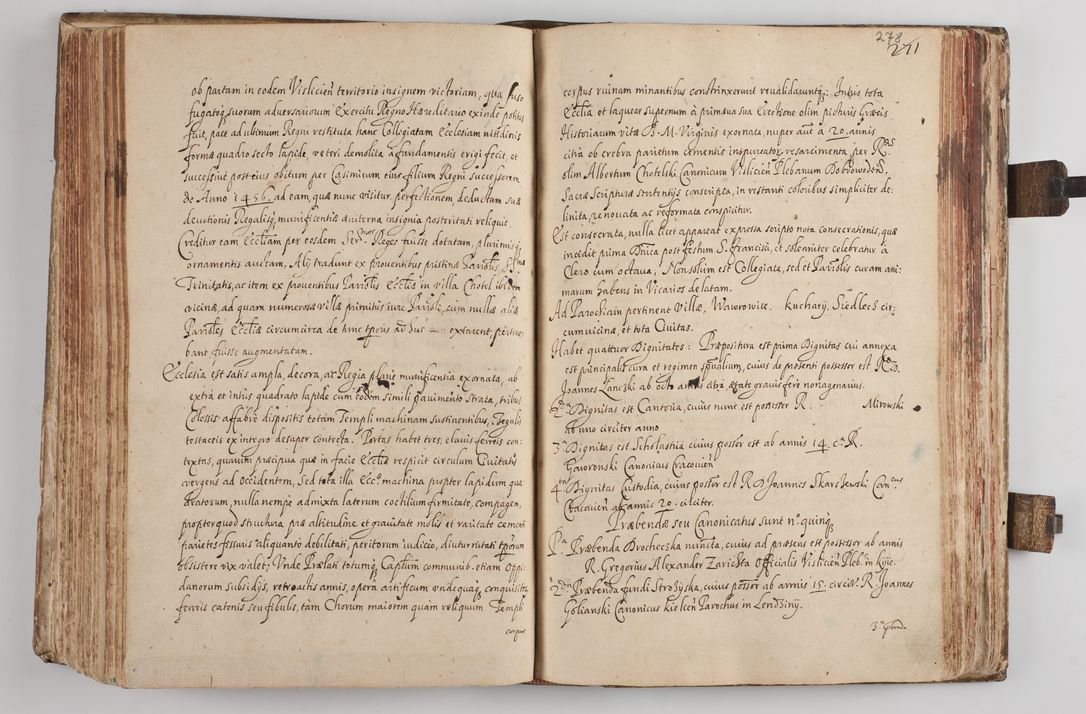 ob partam in eodem Visliciēn territorio insignem victoriam, qua fuso
fugatoq; suorum adversariorum Exercitu Regno Hæreditario exinde potitus
fuit, pace ad ultimum Regni restituta hanc Collegiatam Ecclesiam nitidioris
formæ quadro secto lapide, veteri demolita, a fundamentis erigi fecit, et
successivè post eius obitum per Casimirum eius filium Regni successorem
de Anno 1456. ad eam, quæ nunc visitur perfectionem deductum suæ
devotionis Regalisq; munificentiæ æviterna insignia posteritati reliquit.
Creditur eam Eccliam per eosdem Ser.mos Reges fuisse dotatam, plurimisq;
ornamentis auctam, Alij tradunt ex proventibus pristinæ Parolis S.smæ
Trinitatis, ac item ex proventibus Parolis Eccliæ in villa Chotel ibidem
vicinæ, ad quam numerosæ villæ primitus iure Paroli, cum nullæ aliæ
Paroles Eccliæ circumcirca de hinc tporis ad huc extarent, pertine-
bant, fuisse augmentatam.
Ecclesia est satis ampla, decora, ac Regia planè munificentia exornata, ab
extrà et intùs quadrato lapide cum eodem simili pavimento strata, tribus
Colossis affabrè dispositis totam Templi machinam sustinentibus, Tegulis
testaceis ex integro desuper contecta. Portas habet tres, clavis ferreis con-
textas, quarum præcipua quæ in facie Eccliæ respicit circulum Civitatis
vergens ad Occidentem, Sed tota illa Eccæ machina propter lapidum qua-
dratorum, nulla nempè admixta laterum coctilium firmitate, compagem,
propterquod structura præ altitudine et gravitate molis et raritate cementi
parietes fissuris aliquanto debilitati, peritorum iudicio, diuturnitati tporum
obsistere vix valet; Unde Prælati totumq; Capitlum communib. etiam Oppi-
danorum subsidijs, retroactis annis, opera artificum undequaq; conquisitorum
ferreis catenis seu fibulis, tam Chorum maiorem quàm reliquum Templi
corpus
278
271
corpus ruinam minantibus constrinxerunt revalidaruntq;: Intus tota
Ecclia et laquear supremum à primæva sui Erectione olim picturis Græcis
Historiarum vitæ B. M. Virginis exornata, nuper aut à 20. annis
citra ob crebra parietum cementis inspurcator, resarcimenta per R.
olim Albertum Chotelski Canonicum Visliciēn Plebanum Dobrowoden
Sacræ Scripturæ sententijs conscripta, in restanti coloribus simpliciter de-
linita, renovata ac reformata conspicitur.
Est consecrata, nulla licet appareat expressa scripto nota consecrationis, quæ
incidit prima Dnica post festum S. Francisci, et solenniter celebratur à
Clero cum octava; Non solùm est Collegiata, sed et Parolis curam ani-
marum habens in Vicarios delatam.
Ad Parochiam pertinent villæ, Wawrowice. Kucharÿ. Siedlecz cir-
cumvicinæ, et tota Civitas.
Habet quattuor Dignitates: Præpositura est prima Dignitas cui annexa
est principalis cura et regimen spualium, cuius de præsenti possessor est R. D.
Joannes Lanczki ab octo annis citra ætate gravis ferè nonagenarius.
2.da Dignitas est Cantoria, cuius nunc est possessor R. Mirowski
ab uno circiter anno
3.a Dignitas est Scholastica cuius possor est ab annis 14. ca R.
Gaworonski Canonicus Cracoviēn
4.ta Dignitas Custodia, cuius possor est R D Joannes Skarszewski Can.cus
Cracoviēn ab annis 20. circiter.
Præbendæ seu Canonicatus sunt n.o quinq;
P.a Præbenda Brochecka nuncta, cuius ad præsens est possessor ab annis
R. Gregorius Alexander Zarichta Officialis Visliciēn Pleb. in Kÿie.
2.da Præbenda fundi Strozÿska, cuius possor ab annis 15. circit. R. Joannes
Golianski Canonicus Kielcēn Parochus in Lendzinÿ.
3.a præbenda